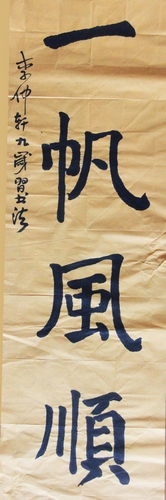 一帆風順
李仲轩九歲習书法